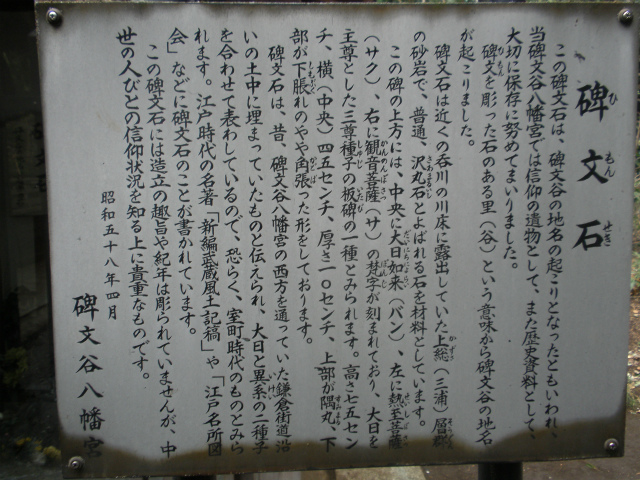 碑文石
ひもんせき
この碑文石は、碑文谷の地名の起こりとなったともいわれ、
当碑文谷八幡宮では信仰の遺物として、また歴史資料として、
大切に保存に努めてまいりました。
碑文を彫った石のある里（谷）という意味から碑文谷の地名
が起こりました。
碑文石は近くの呑川の川床に露出していた上総（三浦）層群
の砂岩で、普通、沢丸石とよばれる石を材料としています。
この碑の上方には、中央に大日如来（バン）、左に勢至菩薩
（サク）、右に観音菩薩（サ）の梵字が刻まれており、大日を
主尊とした三尊種子の板碑の一種とみられます。高さ七五セン
チ、横（中央）四五センチ、厚さ一〇センチ、上部が隅丸、下
部が下脹れのやや角張った形をしております。
碑文石は、昔、碑文谷八幡宮の西方を通っていた鎌倉街道沿
いの土中に埋まっていたものと伝えられ、大日と異系の二種子
を合わせて表わしているので、恐らく、室町時代のものとみら
れます。江戸時代の名著「新編武蔵風土記稿」や「江戸名所図
会」などに碑文石のことが書かれています。
この碑文石には造立の趣旨や紀年は彫られていませんが、中
世の人びとの信仰状況を知る上に貴重なものです。
昭和五十八年四月
碑文谷八幡宮